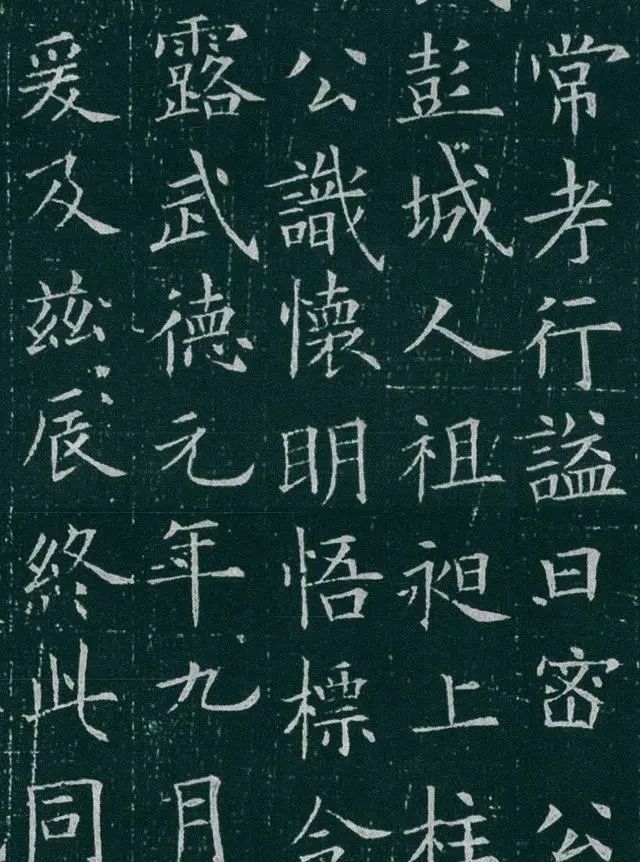 常考行謚曰密公
彭城人祖昶上柱
公識懷明悟標令
露武德元年九月
爰及茲辰終此同